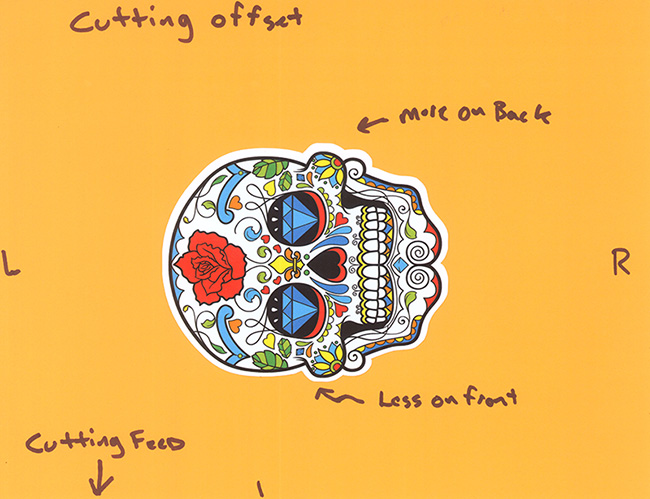 Cutting offset
More on Back
L
R
Less on front
Cutting Feed